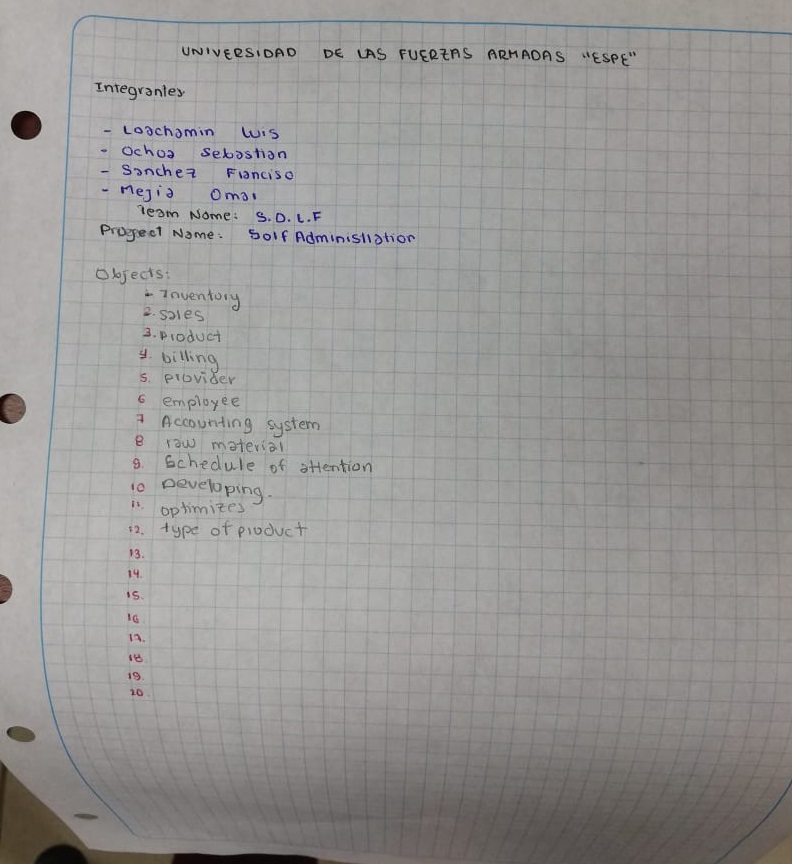 UNIVERSIDAD DE LAS FUERZAS ARMADAS "ESPE"
Integrantes
- Loachamin Luis
- Ochoa Sebastian
- Sanchez Franciso
- Mejia Omar
Team Name: S.O.L.F
Project Name: Solf Administration
Objects:
- Inventory
2. sales
3. product
4. billing
5. provider
6 employee
7 Accounting system
8 raw material
9. Schedule of attention
10 Developing.
11. optimizes
12. type of product
13.
14.
15.
16
17.
18
19.
20